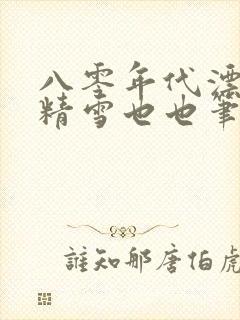 八零年代漂
精雪也也筆
誰知那唐伯虎